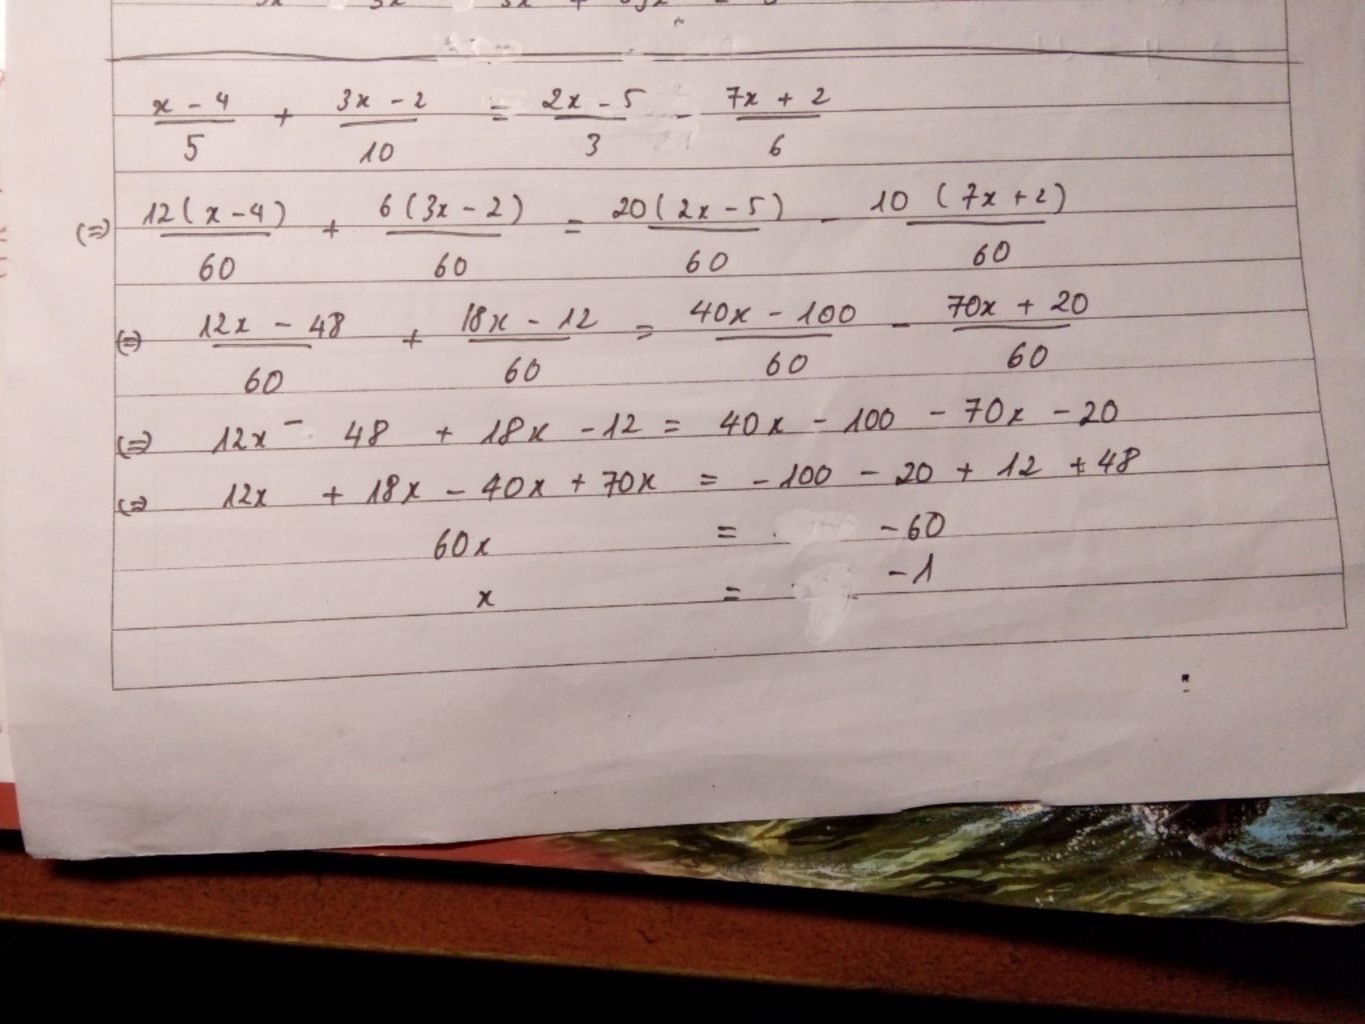 x - 4 / 5 + 3x - 2 / 10 = 2x - 5 / 3 - 7x + 2 / 6
(=) 12(x-4) / 60 + 6(3x-2) / 60 = 20(2x-5) / 60 - 10 (7x+2) / 60
(=) 12x - 48 / 60 + 18x - 12 / 60 = 40x - 100 / 60 - 70x + 20 / 60
(=) 12x - 48 + 18x - 12 = 40x - 100 - 70x - 20
(=) 12x + 18x - 40x + 70x = - 100 - 20 + 12 + 48
60x = - 60
x = - 1